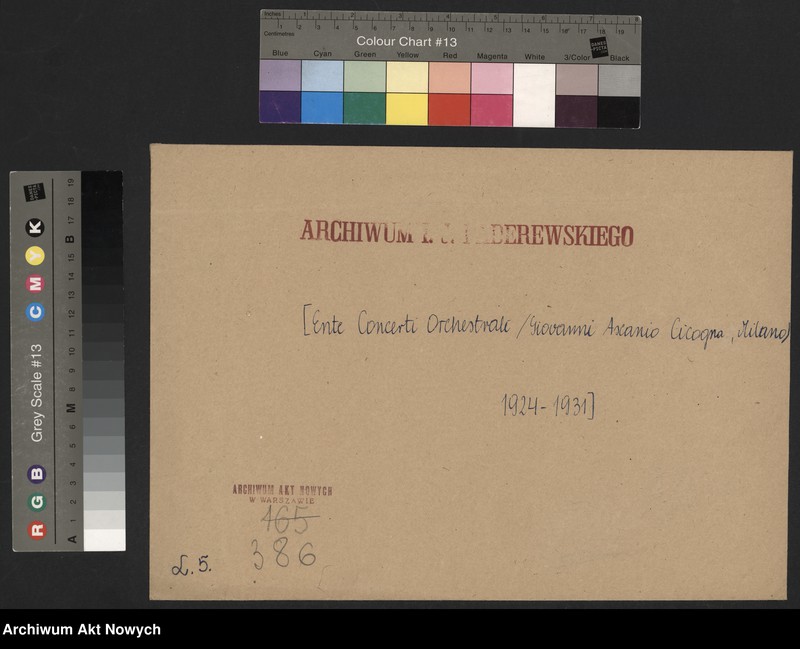 Inches
Centimetres
Colour Chart #13
DANES PICTA
Blue Cyan Green Yellow Red Magenta White 3/Color Black
ARCHIWUM I. J. PADEREWSKIEGO
[Ente Concerti Orchestrali /Giovanni Ascanio Cicogna, Milano/
1924-1931]
ARCHIWUM AKT NOWYCH
W WARSZAWIE
165
386
L. 5.
Grey Scale #13
R G B C M Y K
A 1 2 3 4 5 6 M 8 9 10 11 12 13 14 15 B 17 18 19
Archiwum Akt Nowych